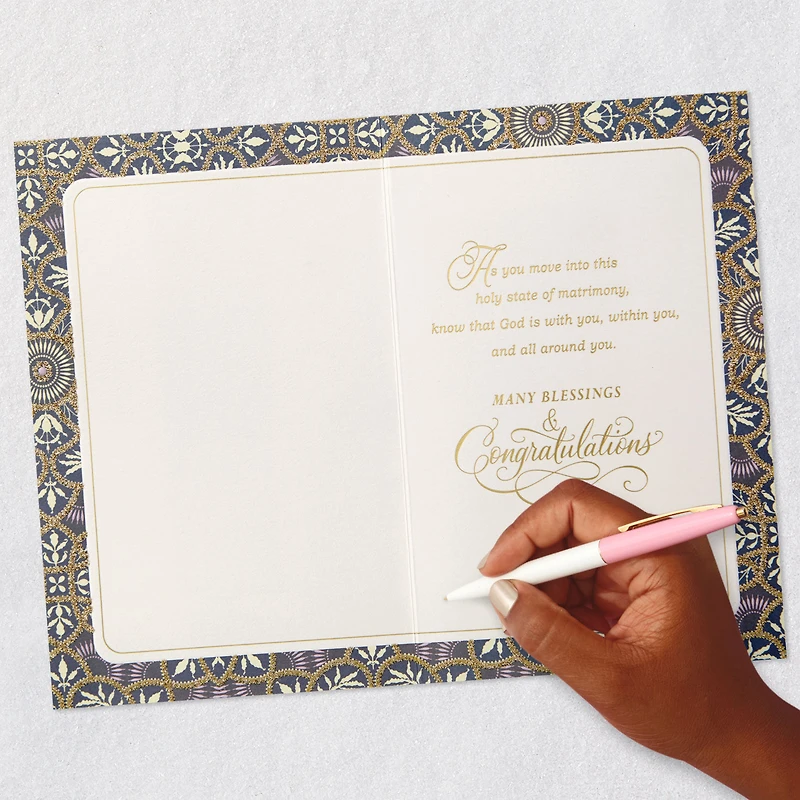 As you move into this
holy state of matrimony,
know that God is with you, within you,
and all around you.
MANY BLESSINGS
&
Congratulations